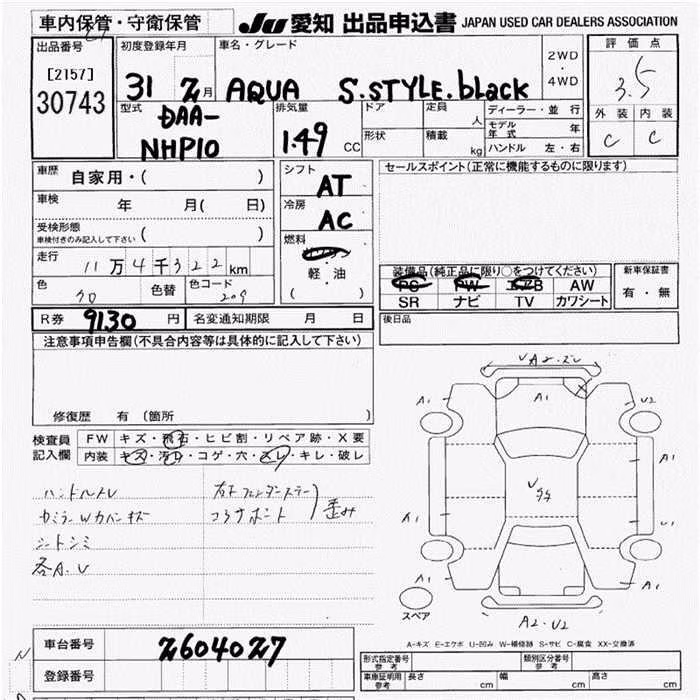 車内保管・守衛保管
JU 愛知 出品申込書 JAPAN USED CAR DEALERS ASSOCIATION
出品番号
[2157]
30743
初度登録年月
31 2月
車名・グレード
AQUA S.STYLE.black
2WD
4WD
評価点
3.5
外装 内装
C C
型式
DAA-
NHP10
排気量
1.49 CC
ドア
定員 人
形状
積載 kg
ディーラー・並行
モデル年式 年
ハンドル 左・右
車歴 自家用・( )
車検 年 月( 日)
受検形態
車検付きのみ記入して下さい ( )
走行 11万4千322km
色 クロ
色替
色コード 209
シフト
AT
冷房
AC
燃料
ガソリン
軽・油
( )
セールスポイント(正常に機能するものに限ります)
装備品(純正品に限り○をつけてください)
PS PW エアB AW
SR ナビ TV カワシート
新車保証書
有・無
R券 9130 円
名変通知期限 月 日
後日品
注意事項申告欄(不具合内容等は具体的に記入して下さい)
修復歴 有 (箇所
検査員
記入欄
FW キズ・飛石・ヒビ割・リペア跡・X要
内装 キズ・汚レ・コゲ・穴・スレ・キレ・破レ
ハンドルスレ
シートシミ
各A.U
コアサポート
歪み
A1
A1
U2
A1
A1
U1
A1
A1
A2.U2
スペア
A-キズ E-エクボ U-凹み W-補修跡 S-サビ C-腐食 XX-交換済
車台番号 2604027
登録番号
形式指定番号
参考
類別区分番号
参考
車庫証明用
参考
長さ cm
幅 cm
高さ cm